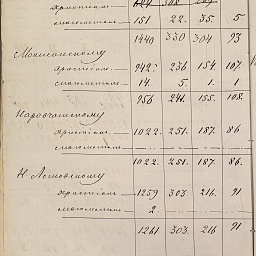 151. 22. 35. 5
1440 330 304 93
Мокшанскому
христіан. — 942. 236 154 107.
магометан — 14. 5. 1. 1
956 241. 155. 108.
Наровчатскому
христіан. — 1022. 251. 187. 86
магометан —
1022. 251. 187. 86.
Н. Ломовскому
христіан — 1259 303. 216. 91
магометан — 2
1261 303. 216 91